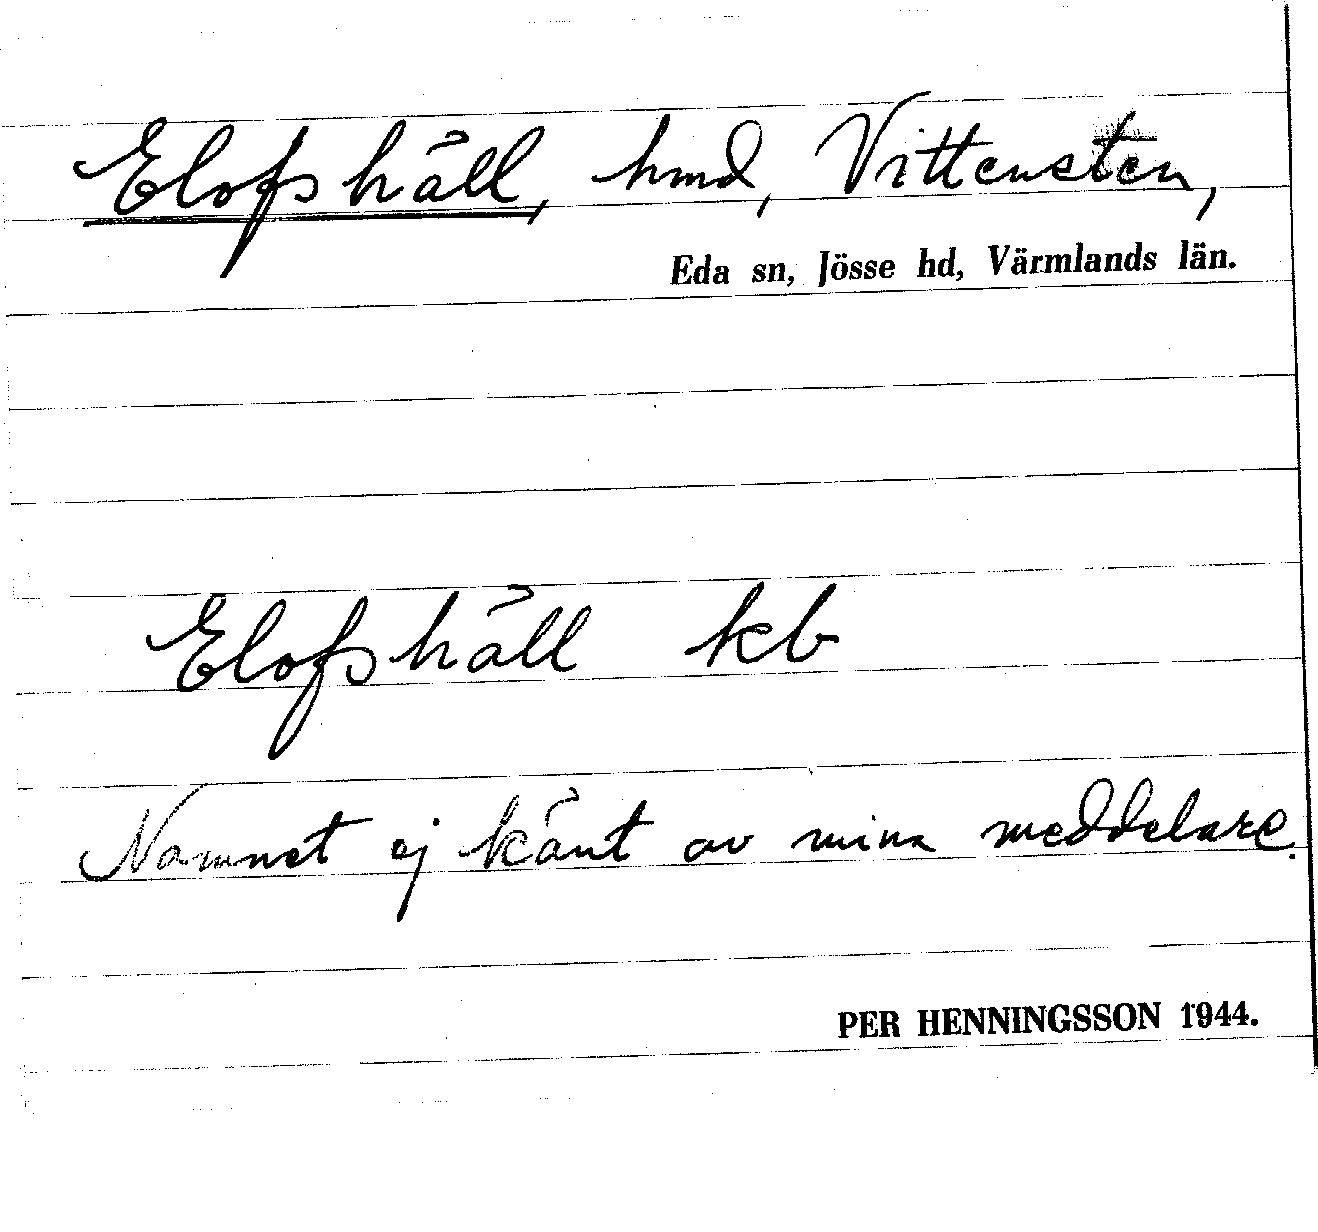 Elofshäll, hmd, Vittensten,
Eda sn, Jösse hd, Värmlands län.
Elofshäll kb
Namnet ej känt av mina meddelare.
PER HENNINGSSON 1944.